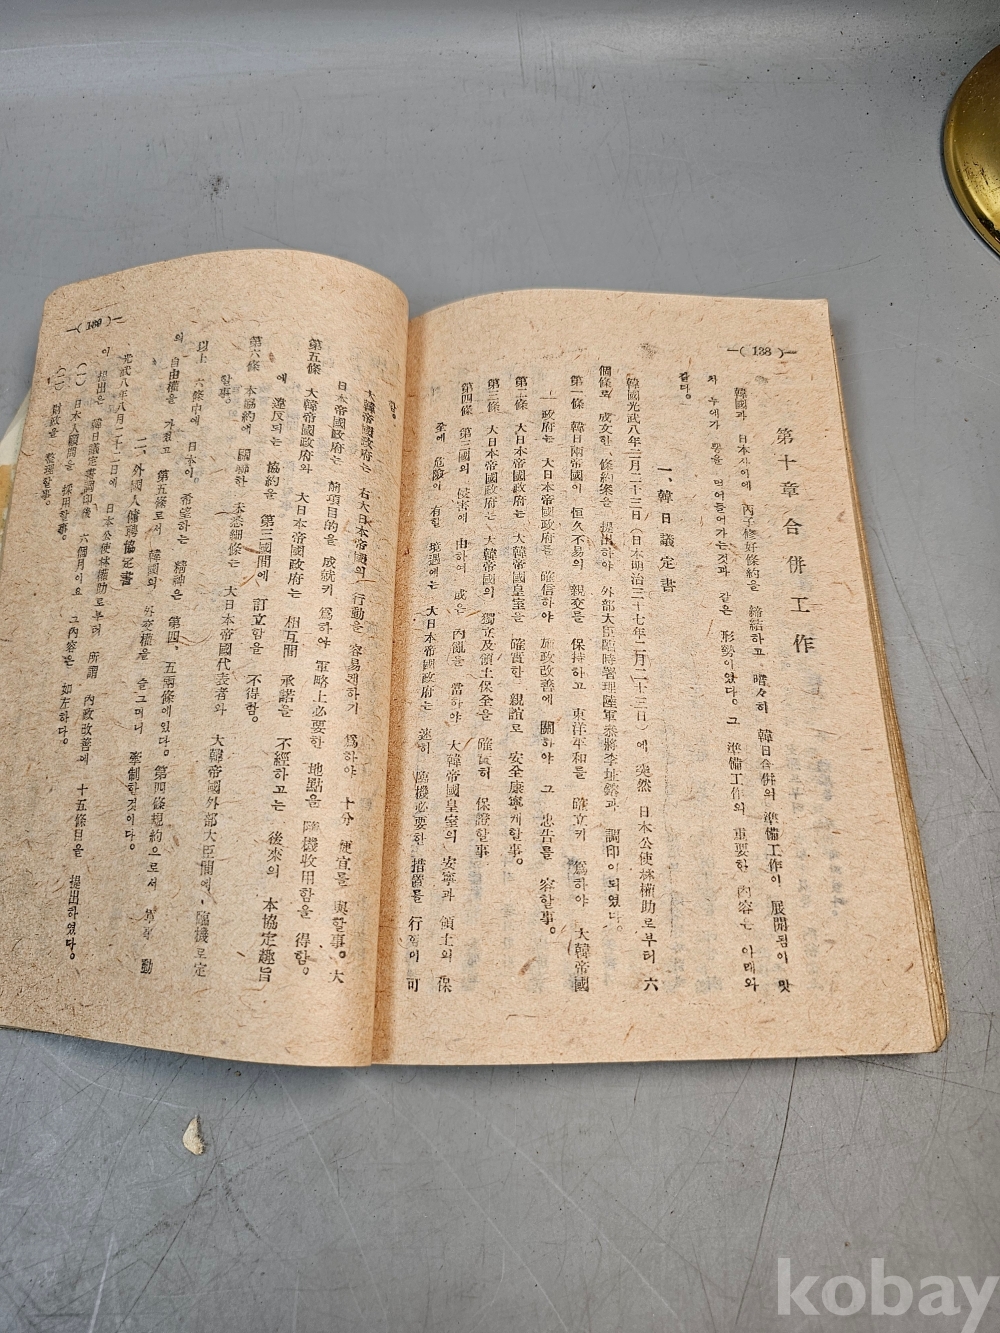 —( 138 )—
第十章 合併工作
韓國과 日本사이에 丙子修好條約을 締結하고, 暗々히 韓日合併의 準備工作이 展開됨이 맛
치 누에가 뽕을 먹어들어가는것과 같은 形勢이었다. 그 準備工作의 重要한 內容은 아래와
같다.
一、韓日議定書
韓國光武八年二月二十三日(日本明治三十七年二月二十三日)에 突然 日本公使林權助로부터 六
個條로 成文한 條約案을 提出하야 外部大臣臨時署理陸軍參將李址鎔과 調印이되였다.
第一條 韓日兩帝國이 恒久不易의 親交를 保持하고 東洋平和를 確立키 爲하야 大韓帝國
政府는 大日本帝國政府를 確信하야 施政改善에 關하야 그 忠告를 容할事。
第二條 大日本帝國政府는 大韓帝國皇室을 確實한 親誼로 安全康寧케할事。
第三條 大日本帝國政府는 大韓帝國의 獨立及領土保全을 確實히 保證할事
第四條 第三國의 侵害에 由하여 或은 內亂을 當하야 大韓帝國皇室의 安寧과 領土의 保
全에 危險이 有할 境遇에는 大日本帝國政府는 速히 臨機必要한 措置를 行함이 可
함。
大韓帝國政府는 右大日本帝國의 行動을 容易케하기 爲하야 十分 便宜를 與할事。大
日本帝國政府는 前項目的을 成就키 爲하야 軍略上必要한 地點을 隨機收用함을 得함。
第五條 大韓帝國政府와 大日本帝國政府는 相互間 承諾을 不經하고는 後來의 本協定趣旨
에 違反되는 協約을 第三國間에 訂立함을 不得함。
第六條 本協約에 關聯한 未悉細條는 大日本帝國代表者와 大韓帝國外部大臣間에、臨機로定
할事。
以上 六條中에 日本이 希望하는 精神은 第四、五兩條에있다。第四條規約으로서 軍事 動
의 自由權을 가젔고 第五條로서 韓國의 外交權을 슬그머니 牽制한것이다。
二、外國人傭聘協定書
光武八年八月二十二日에 日本公使林權助로부터 所謂 內政改善에 十五條目을 提出하였다。
이 提出은 韓日議定書調印後 六個月이요 그內容은 如左하다。
(一) 日本人顧問을 採用할事。
(二) 財政을 整理할事。
kobay